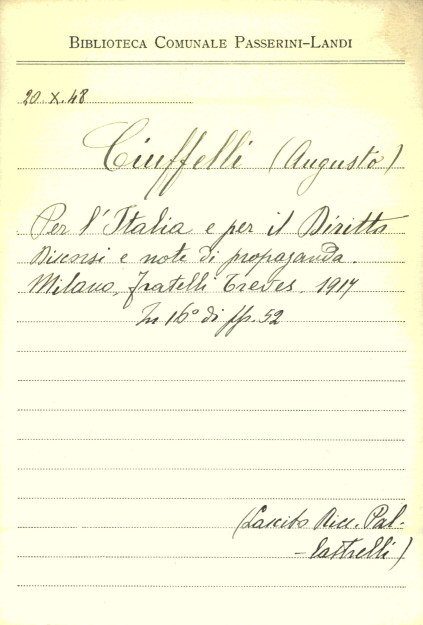 BIBLIOTECA COMUNALE PASSERINI-LANDI
20 X. 48
Ciuffelli (Augusto)
Per l'Italia e per il Diritto
Discorsi e note di propaganda.
Milano, Fratelli Treves, 1917
In 16° di pp. 52
(Lascito Ricc. Pal-
-lastrelli)